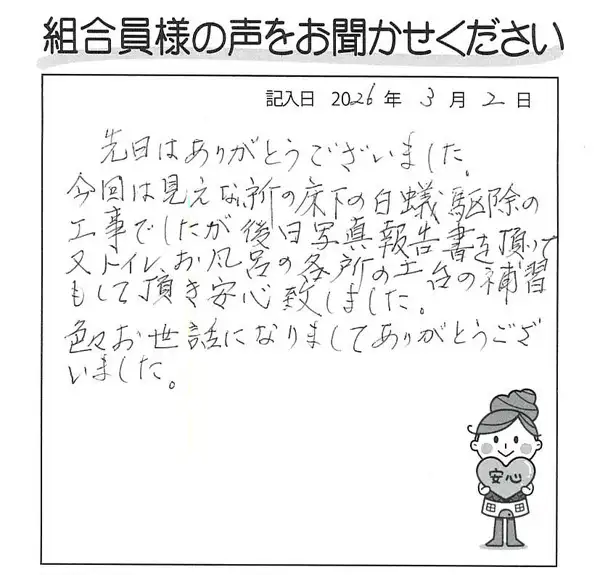 組合員様の声をお聞かせください
記入日 2026年 3月 2日
先日はありがとうございました。
今回は見えない所の床下の白蟻駆除の
工事でしたが後日写真報告書を頂いて
又トイレ、お風呂の各所の土台の補習
もして頂き安心致しました。
色々お世話になりましてありがとうござ
いました。
安心